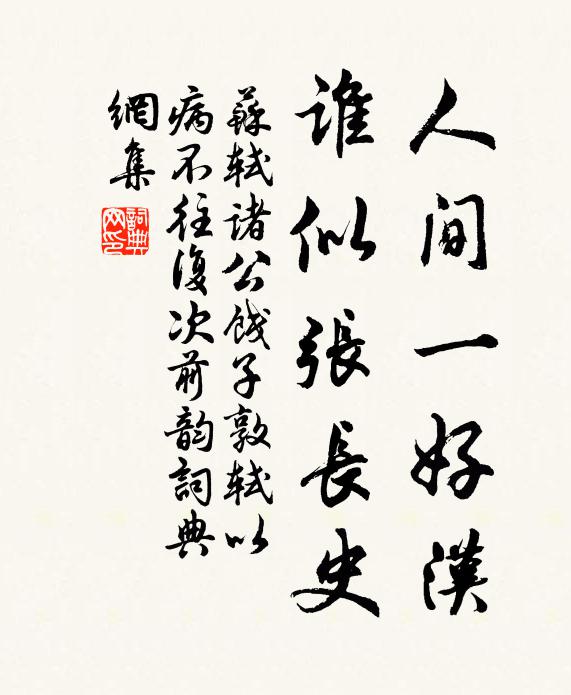 人間一好漢
誰似張長史
蘇軾諸公餞子敦軾以
病不往復次前韵詞典
網集
詞典
网印